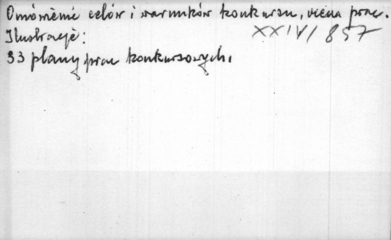 Omówienie celów i warunków konkursu, ocena prac.
XXIV/857
Ilustracje:
33 plany prac konkursowych.